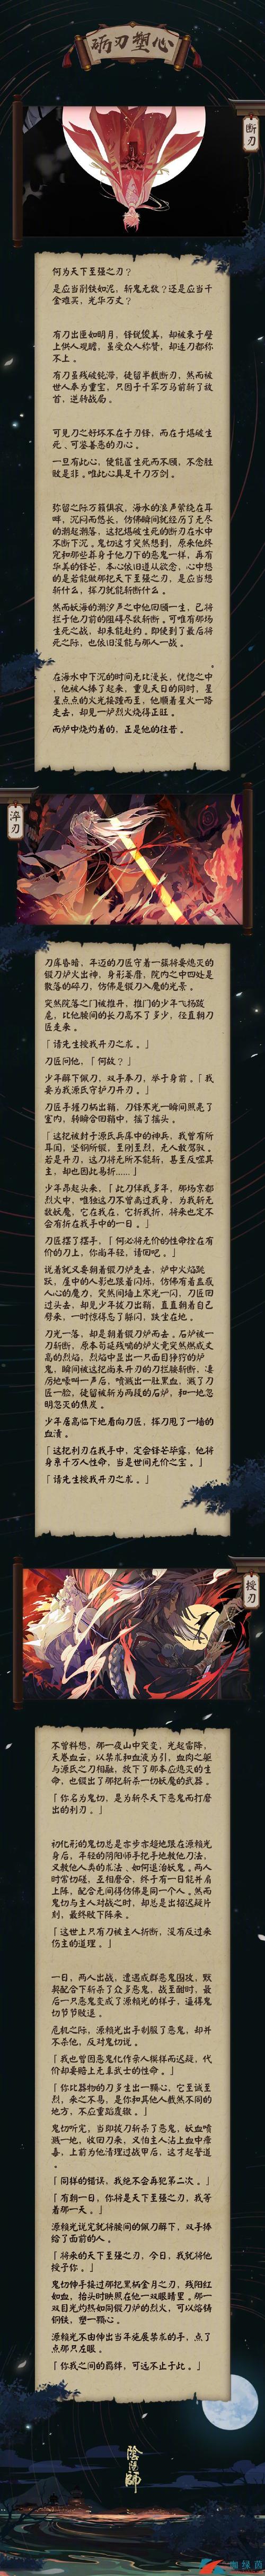 砺刃塑心
断刃
何为天下至强之刃？
是应当削铁如泥，斩鬼无数？还是应当千
金难买，光华万丈？
有刀出匣如明月，锋锐俊美，却被束于壁
上供人观瞻，虽受众人称赞，却连刀都称
不上。
有刀虽残破钝滞，徒留半截断刃，然而被
世人奉为重宝，只因于千军万马前斩了敌
首，逆转战局。
可见刀之好坏不在于刃锋，而在于堪破生
死、可鉴善恶的刀心。
一旦有此心，便能置生死而不顾，不念胜
败是非。唯此心真足千刀万剑。
弥留之际万籁俱寂，海水的浪声萦绕在耳
畔，沉闷而悠长，仿佛瞬间就经历了无尽
的潮起潮落，这把堪破生死的断刃在水中
不断下沉。鬼切这才突然想到，原来他终
究和那些葬身于他刀下的恶鬼一样，再有
华美的锋芒，本心依旧遵从欲念，心中想
的是若能做那把天下至强之刃，是应当想
斩什么，挥刀就能斩断什么。
然而妖海的潮汐声之中他回顾一生，已将
拦于他刀前的阻碍尽数斩断。可唯有那场
生死之战，却未能赴约，即使到了最后将
死之际，也依旧没能与那人一战。
在海水中下沉的时间无比漫长，恍惚之中
，他被人捧了起来，重见天日的同时，星
星点点的火光接踵而至，他顺着星火一路
走去，却见一炉烈火烧得正旺。
而炉中烧灼着的，正是他的往昔。
淬刃
刀库昏暗，年迈的刀匠守着一簇将要熄灭的
锻刀炉火出神，身形萎靡，院内之中四处是
散落的碎刃，仿佛是锻刀入魔的光景。
突然院落之门被推开，推门的少年飞扬跋
扈，比他腰间的长刀高不了多少，径直朝刀
匠走来。
「请先生授我开刃之术。」
刀匠问他，「何故？」
少年解下佩刀，双手奉刀，举于身前。「我
要为我源氏守护刀开刃。」
刀匠手握刀柄出鞘，刀锋寒光一瞬间照亮了
室内，转瞬合回鞘中，摇了摇头。
「这把被封于源氏兵库中的神兵，我曾有所
耳闻，坚铜所锻，至刚至烈，无人敢驾驭。
若是开刃，这刀将无所不能斩，甚至反噬其
主，却也因此易折……」
少年昂起头来，「此刀伴我多年，那场京都
烈火中，唯独这刀不曾离过我身，为我斩无
数妖魔，它在我在，它折我折，将来也定不
会有折在我手中的一日。」
刀匠摆了摆手，「何必将无价的性命拴在有
价的刀上，你尚年轻，请回吧。」
说着就又要朝着锻刀炉走去，炉中火焰跳
跃，屋中的人影也跟着闪烁，仿佛有着蛊惑
人心的魔力，突然间墙上寒光一闪，刀匠回
过头去，却见少年拔刀出鞘，直直朝着自己
劈来，一时惊得忘了躲闪，跌坐在地。
刀光一落，却是朝着锻刀炉而去。石炉被一
刀斩断，原本苟延残喘的炉火竟突然燃成丈
高的烈焰，烈焰中显出一只面目狰狞的炉
鬼，瞬间被这把尚未开刃的刀拦腰斩断，凄
厉地嚎叫一声后，喷溅出一肚黑血，溅了刀
匠一脸，徒留被斩为两段的石炉，和一地忽
明忽灭的焦炭。
少年居高临下地看向刀匠，挥刀甩了一墙的
血渍。
「这把利刃在我手中，定会锋芒毕露，他将
身系千万人性命，当是世间无价之宝。」
「请先生授我开刃之术。」
授刃
不曾料想，那一夜山中突变，光起雷降，
天卷血云，以禁术和血液为引，血肉之躯
与源氏之刀相融，救下了那本应熄灭的生
命，也锻出了那把斩杀一切妖魔的武器。
「你名为鬼切，是为斩尽天下恶鬼而打磨
出的利刃。」
初化形的鬼切总是亦步亦趋地跟在源赖光
身后，年轻的阴阳师手把手地教他刀法，
又教他人类的术法、如何退治妖鬼。两人
时常切磋，互相磨合，终于有一日能并肩
上阵，配合无间得仿佛是同一个人。然而
鬼切与主人对战之时，却总是出招迟疑片
刻，最终败下阵来。
「这世上只有刀被主人折断，没有反过来
伤主的道理。」
一日，两人出战，遭遇成群恶鬼围攻，默
契配合下斩杀了众多恶鬼，战至酣时，最
后一只恶鬼变成了源赖光的样子，逼得鬼
切节节败退。
危机之际，源赖光出手制服了恶鬼，却并
不杀他，反对鬼切说。
「我也曾因恶鬼化作亲人模样而迟疑，代
价却要赔上无辜武士的性命。」
「你比器物的刀多生出一颗心，它至诚至
烈，来之不易，是你和其他人截然不同的
地方，不应重蹈废辙。」
鬼切听完，当即拔刀斩杀了恶鬼，妖血喷
溅一地，收回刀来，又怕主人沾上血中瘴
毒，上前为他清理过战甲后，这才起誓道
。
「同样的错误，我绝不会再犯第二次。」
「有朝一日，你将是天下至强之刃，我等
着那一天。」
源赖光说完就将腰间的佩刀解下，双手捧
给了面前的人。
「将来的天下至强之刃，今日，我就将他
授于你。」
鬼切伸手接过那把黑柄金月之刃，残阳红
如血，抬头时映照在他一双眼睛里。那一
双目光灼热如同锻刀炉的烈火，可以熔铸
铜铁，塑一颗心。
源赖光不由伸出当年施展禁术的手，点了
点那只左眼。
「你我之间的羁绊，可远不止于此。」
陰陽師
咖绿茵